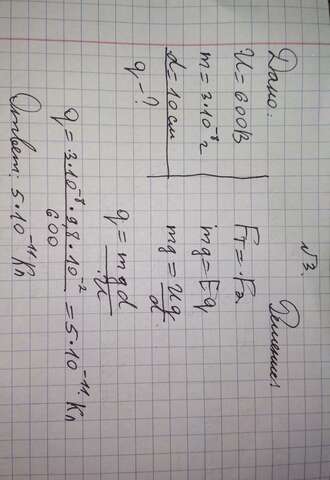 №3.
Дано:
U = 600В
m = 3·10⁻⁸г
d = 10 см
q - ?
Решение:
Fт = Fэ
mg = Eq
mg = Uq/d
q = mgd/U
q = 3·10⁻⁸·9,8·10⁻²/600 = 5·10⁻¹¹ Кл
Ответ: 5·10⁻¹¹ Кл